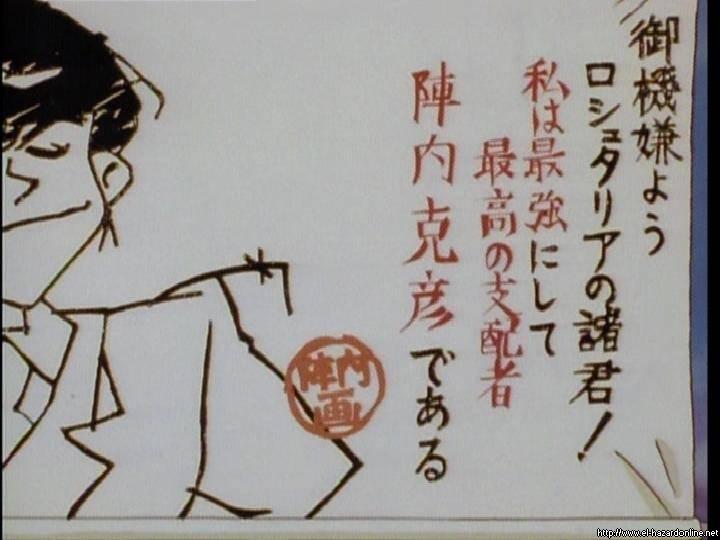 御機嫌よう
ロシュタリアの諸君!
私は最強にして
最高の支配者
陣内克彦である
陣内
画
http://www.el-hazardonline.net